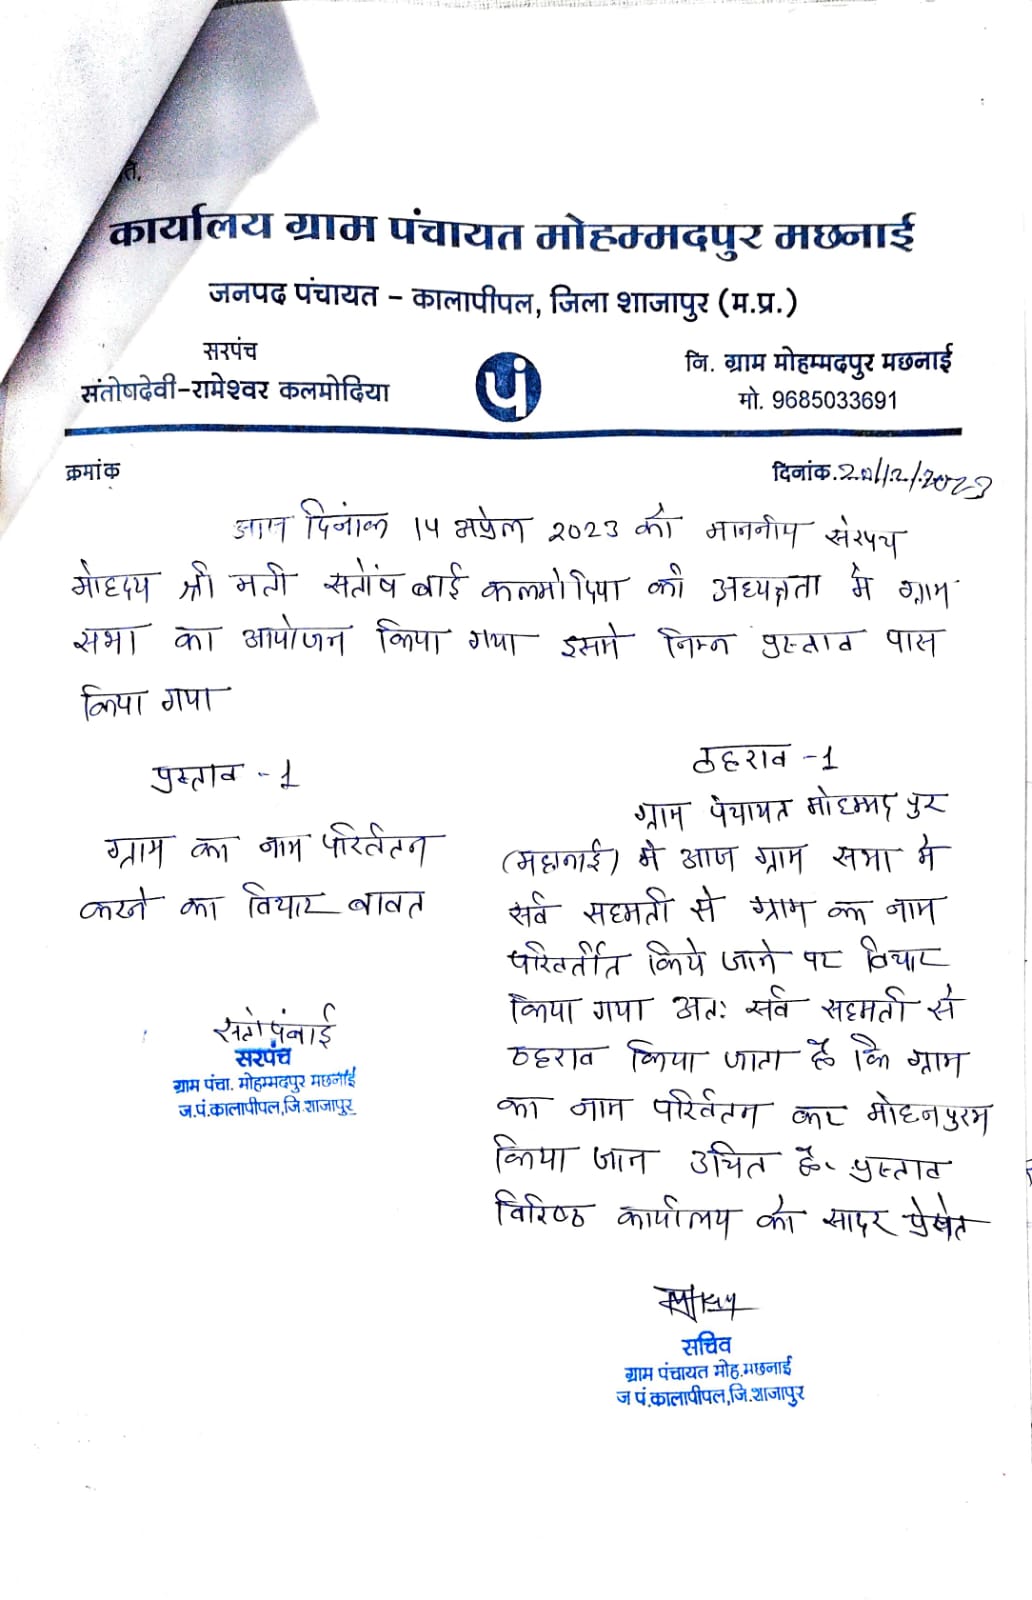 ति.
कार्यालय ग्राम पंचायत मोहम्मदपुर मछनाई
जनपद पंचायत – कालापीपल, जिला शाजापुर (म.प्र.)
सरपंच
संतोषदेवी-रामेश्वर कलमोदिया
पं
नि. ग्राम मोहम्मदपुर मछनाई
मो. 9685033691
क्रमांक
दिनांक.20/12/2023
आज दिनांक 14 अप्रेल 2023 को माननीय संरपच
मोहदय श्री मती सतोंष बाई कलमोदिया की अध्यक्षता मे ग्राम
सभा का आयोजन किया गया इसमे निम्न प्रस्ताव पास
किया गया
प्रस्ताव - 1
ग्राम का नाम परिर्वतन
करने का विचार बावत
सतोषबाई
सरपंच
ग्राम पंचा. मोहम्मदपुर मछनाई
ज.पं.कालापीपल,जि.शाजापुर
ठहराव - 1
ग्राम पंचायत मोहम्मदपुर
(मछनाई) मे आज ग्राम सभा मे
सर्व सहमती से ग्राम का नाम
परिवर्तीत किये जाने पर विचार
किया गया अत: सर्व सहमती से
ठहराव किया जाता है कि ग्राम
का नाम परिर्वतन कर मोहनपुरम
किया जान उचित है. प्रस्ताव
विरिष्ठ कार्यालय को सादर प्रेषित
सचिव
ग्राम पंचायत मोह.मछनाई
ज पं.कालापीपल,जि.शाजापुर